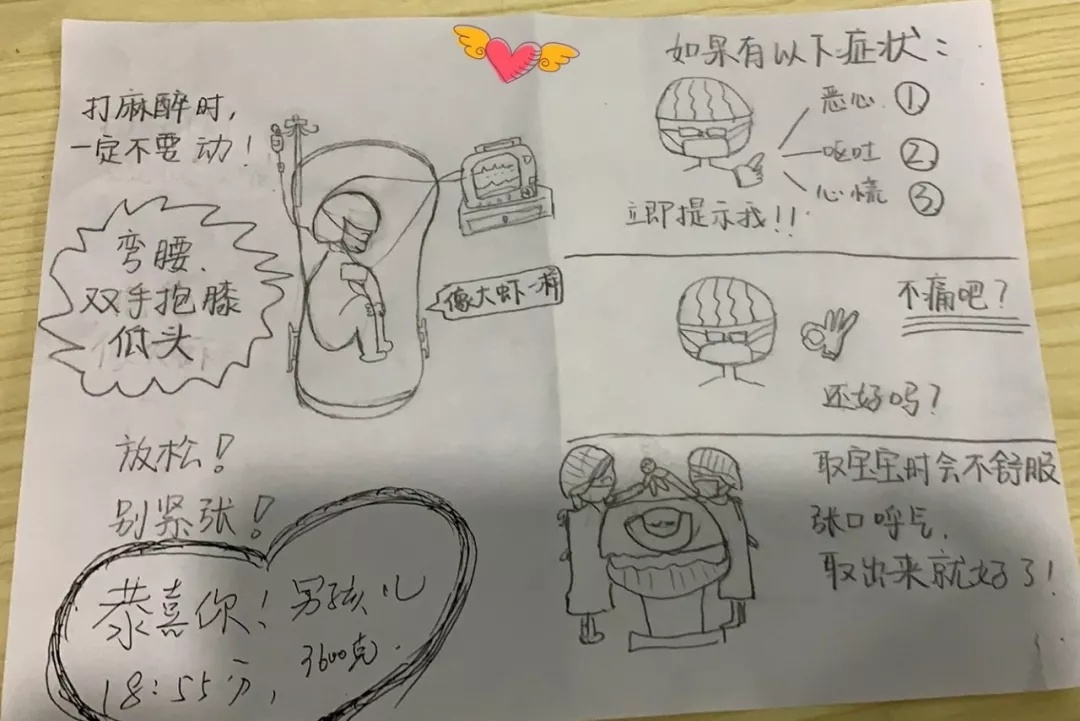 打麻醉时,
一定不要动!
弯腰.
双手抱膝
低头
像大虾一样
放松!
别紧张!
恭喜你! 男孩儿
18:55分, 3600克.
如果有以下症状:
恶心 ①
呕吐 ②
心慌 ③
立即提示我!!
不痛吧?
还好吗?
取宝宝时会不舒服
张口呼气.
取出来就好了!